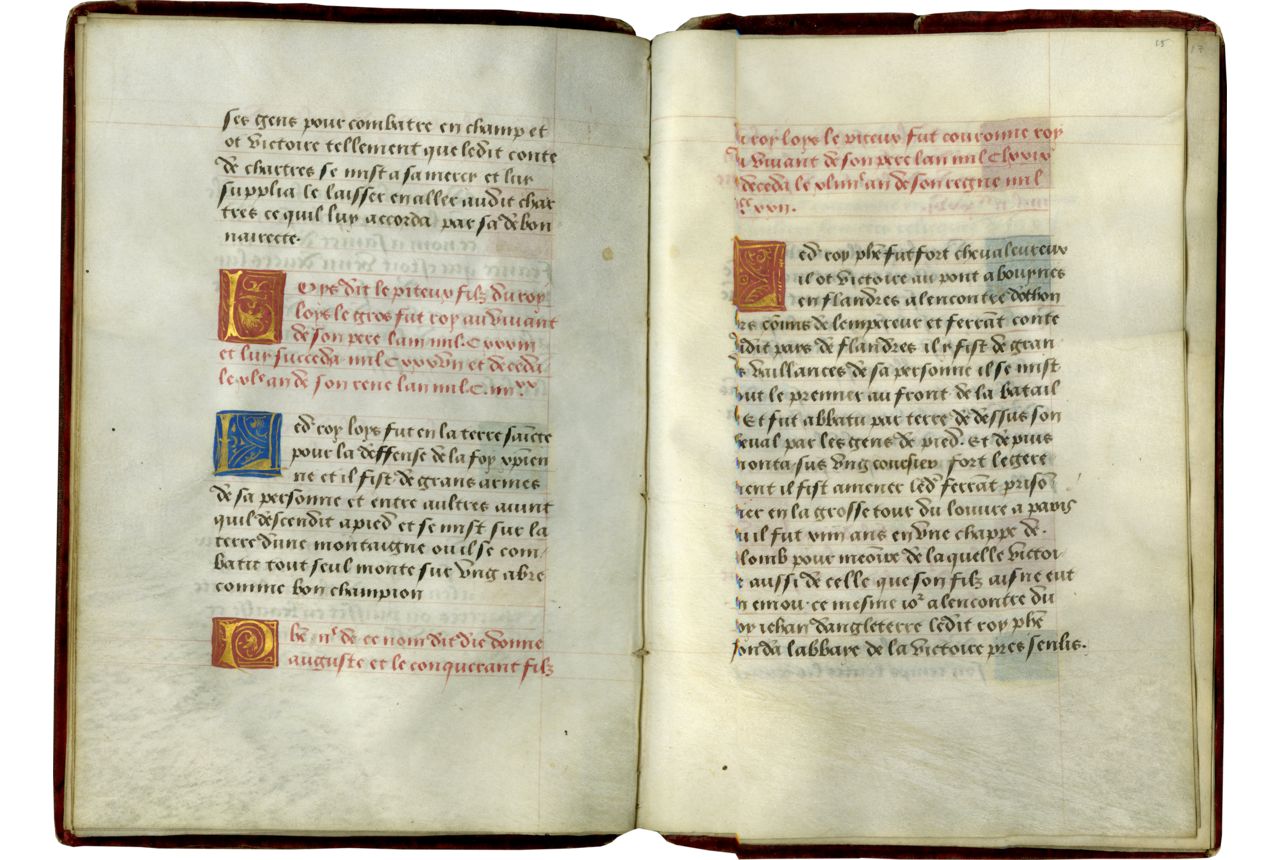 ses gens pour combatre en champ et
ot victoire tellement que ledit conte
de chartres se mist a sa mercy et luy
supplia le laisser en aller audit char
tres ce quil luy accorda par sa debon
nairecte.
Loys dit le piteux filz du roy
loys le gros fut roy au vivant
de son pere lan mil. C xxxiii
et luy succeda mil C xxxvii et deceda
le xlᵉ an de son rene lan mil. C. iiiiˣˣ
Led' roy loys fut en la terre saincte
pour la deffense de la foy xpien
ne et il fist de grans armes
de sa personne et entre aultres avint
quil descendit a pied et se mist sur la
terre dune montaigne ou il se com
batit tout seul monte sur ung abre
comme bon champion
Phē iiᵉ de ce nom dit die donne
auguste et le conquerant filz
u roy loys le piteux fut couronne roy
u vivant de son pere lan mil C lxxix
deceda le xliiiᵉ an de son regne mil
xxii.
Led' roy phē fut fort chevaleureux
il ot victoire au pont a bouynes
en flandres a lencontre dothon
de lempereur et ferrāt conte
udit pays de flandres il y fist de gran
s vaillances de sa personne il se mist
out le premier au front de la batail
Et fut abbatu par terre de dessus son
eval par les gens de pied. Et depuis
onta sus ung coursier fort legere
ent il fist amener led' ferrāt prison
ier en la grosse tour du louvre a paris
u il fut ans en une chappe de.
lomb pour de laquelle victoi
e aussi de celle que son filz aisne eut
n ce mesme ioʳ a lencontre du
oy iehan dangleterre ledit roy phē
onda labbaye de la victoire pres senlis.
15
13